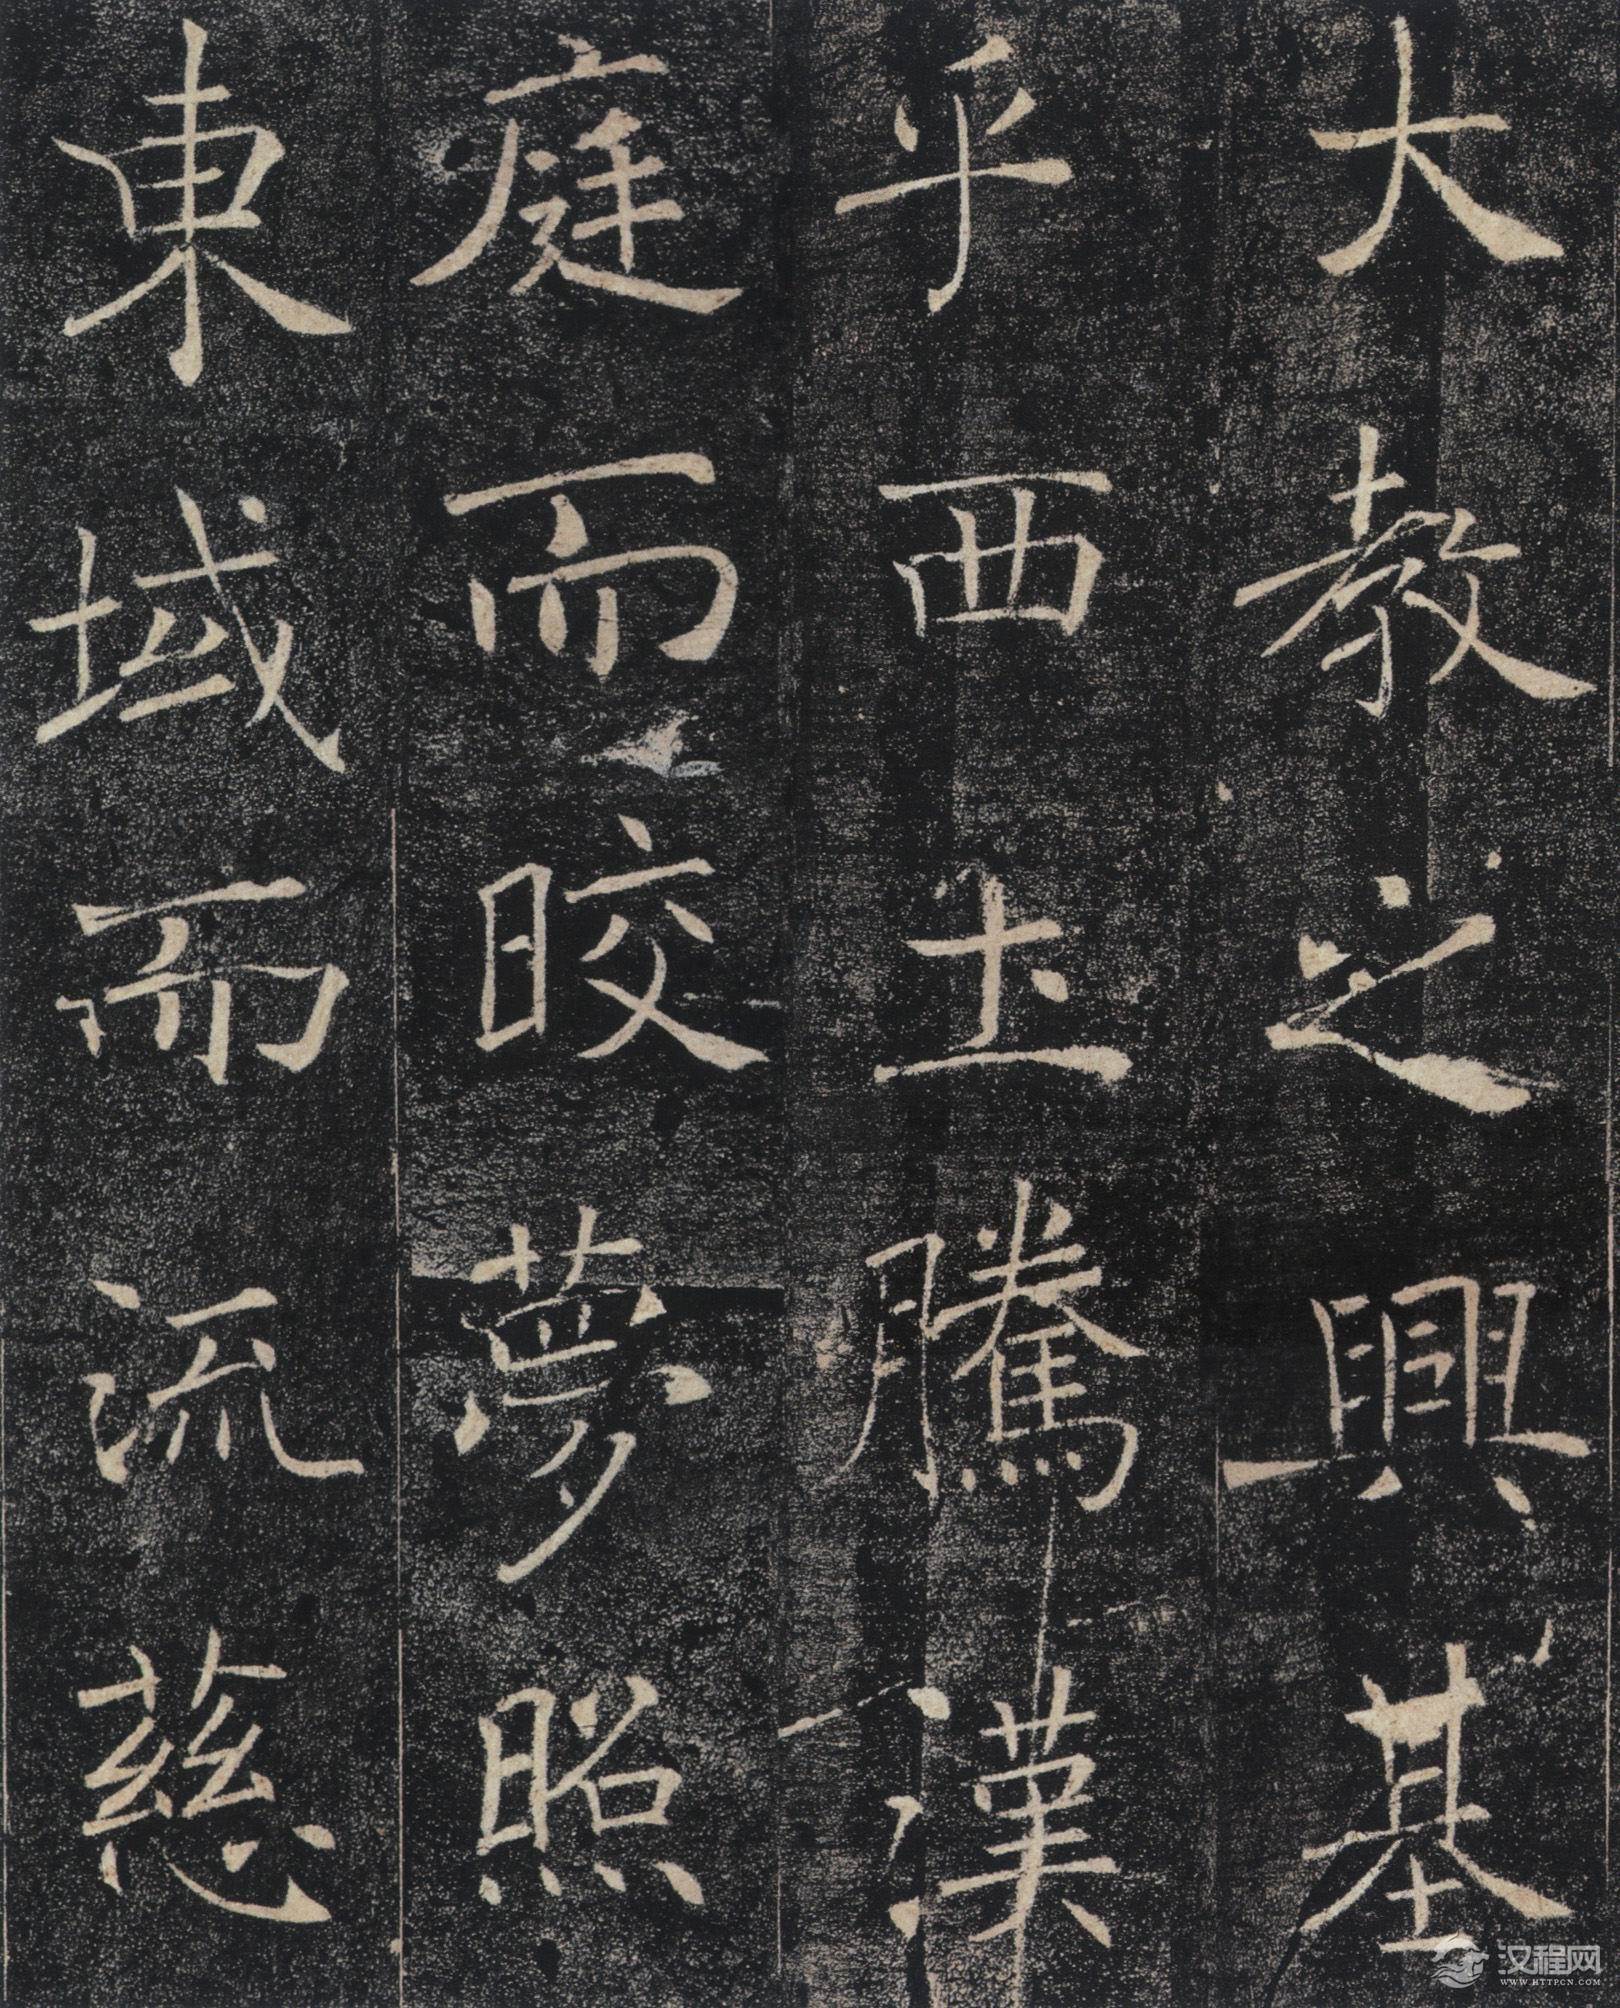 大教之興基
乎西土騰漢
庭而皎夢照
東域而流慈
汉程网
WWW.HTTPCN.COM